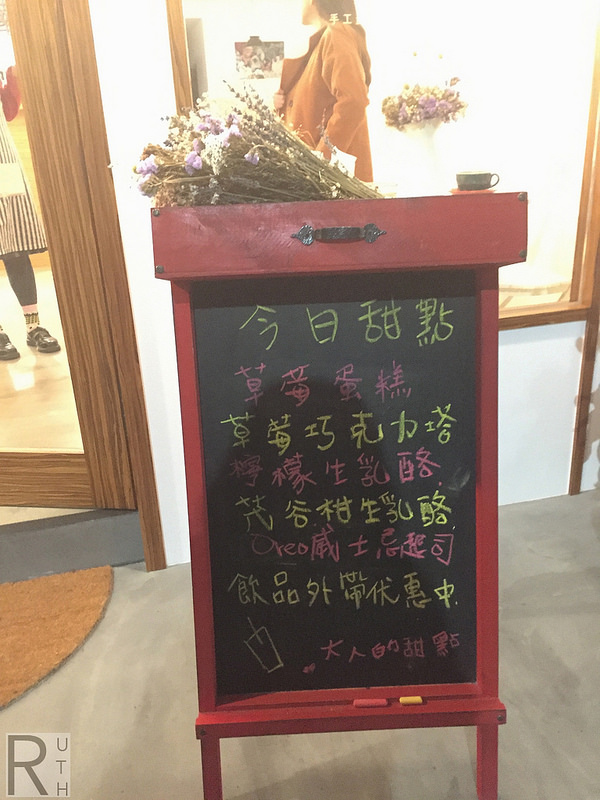 手工
今日甜點
草莓蛋糕
草莓巧克力塔
檸檬生乳酪
茂谷柑生乳酪
Oreo威士忌起司
飲品外帶优惠中
大人的甜點
RUTH